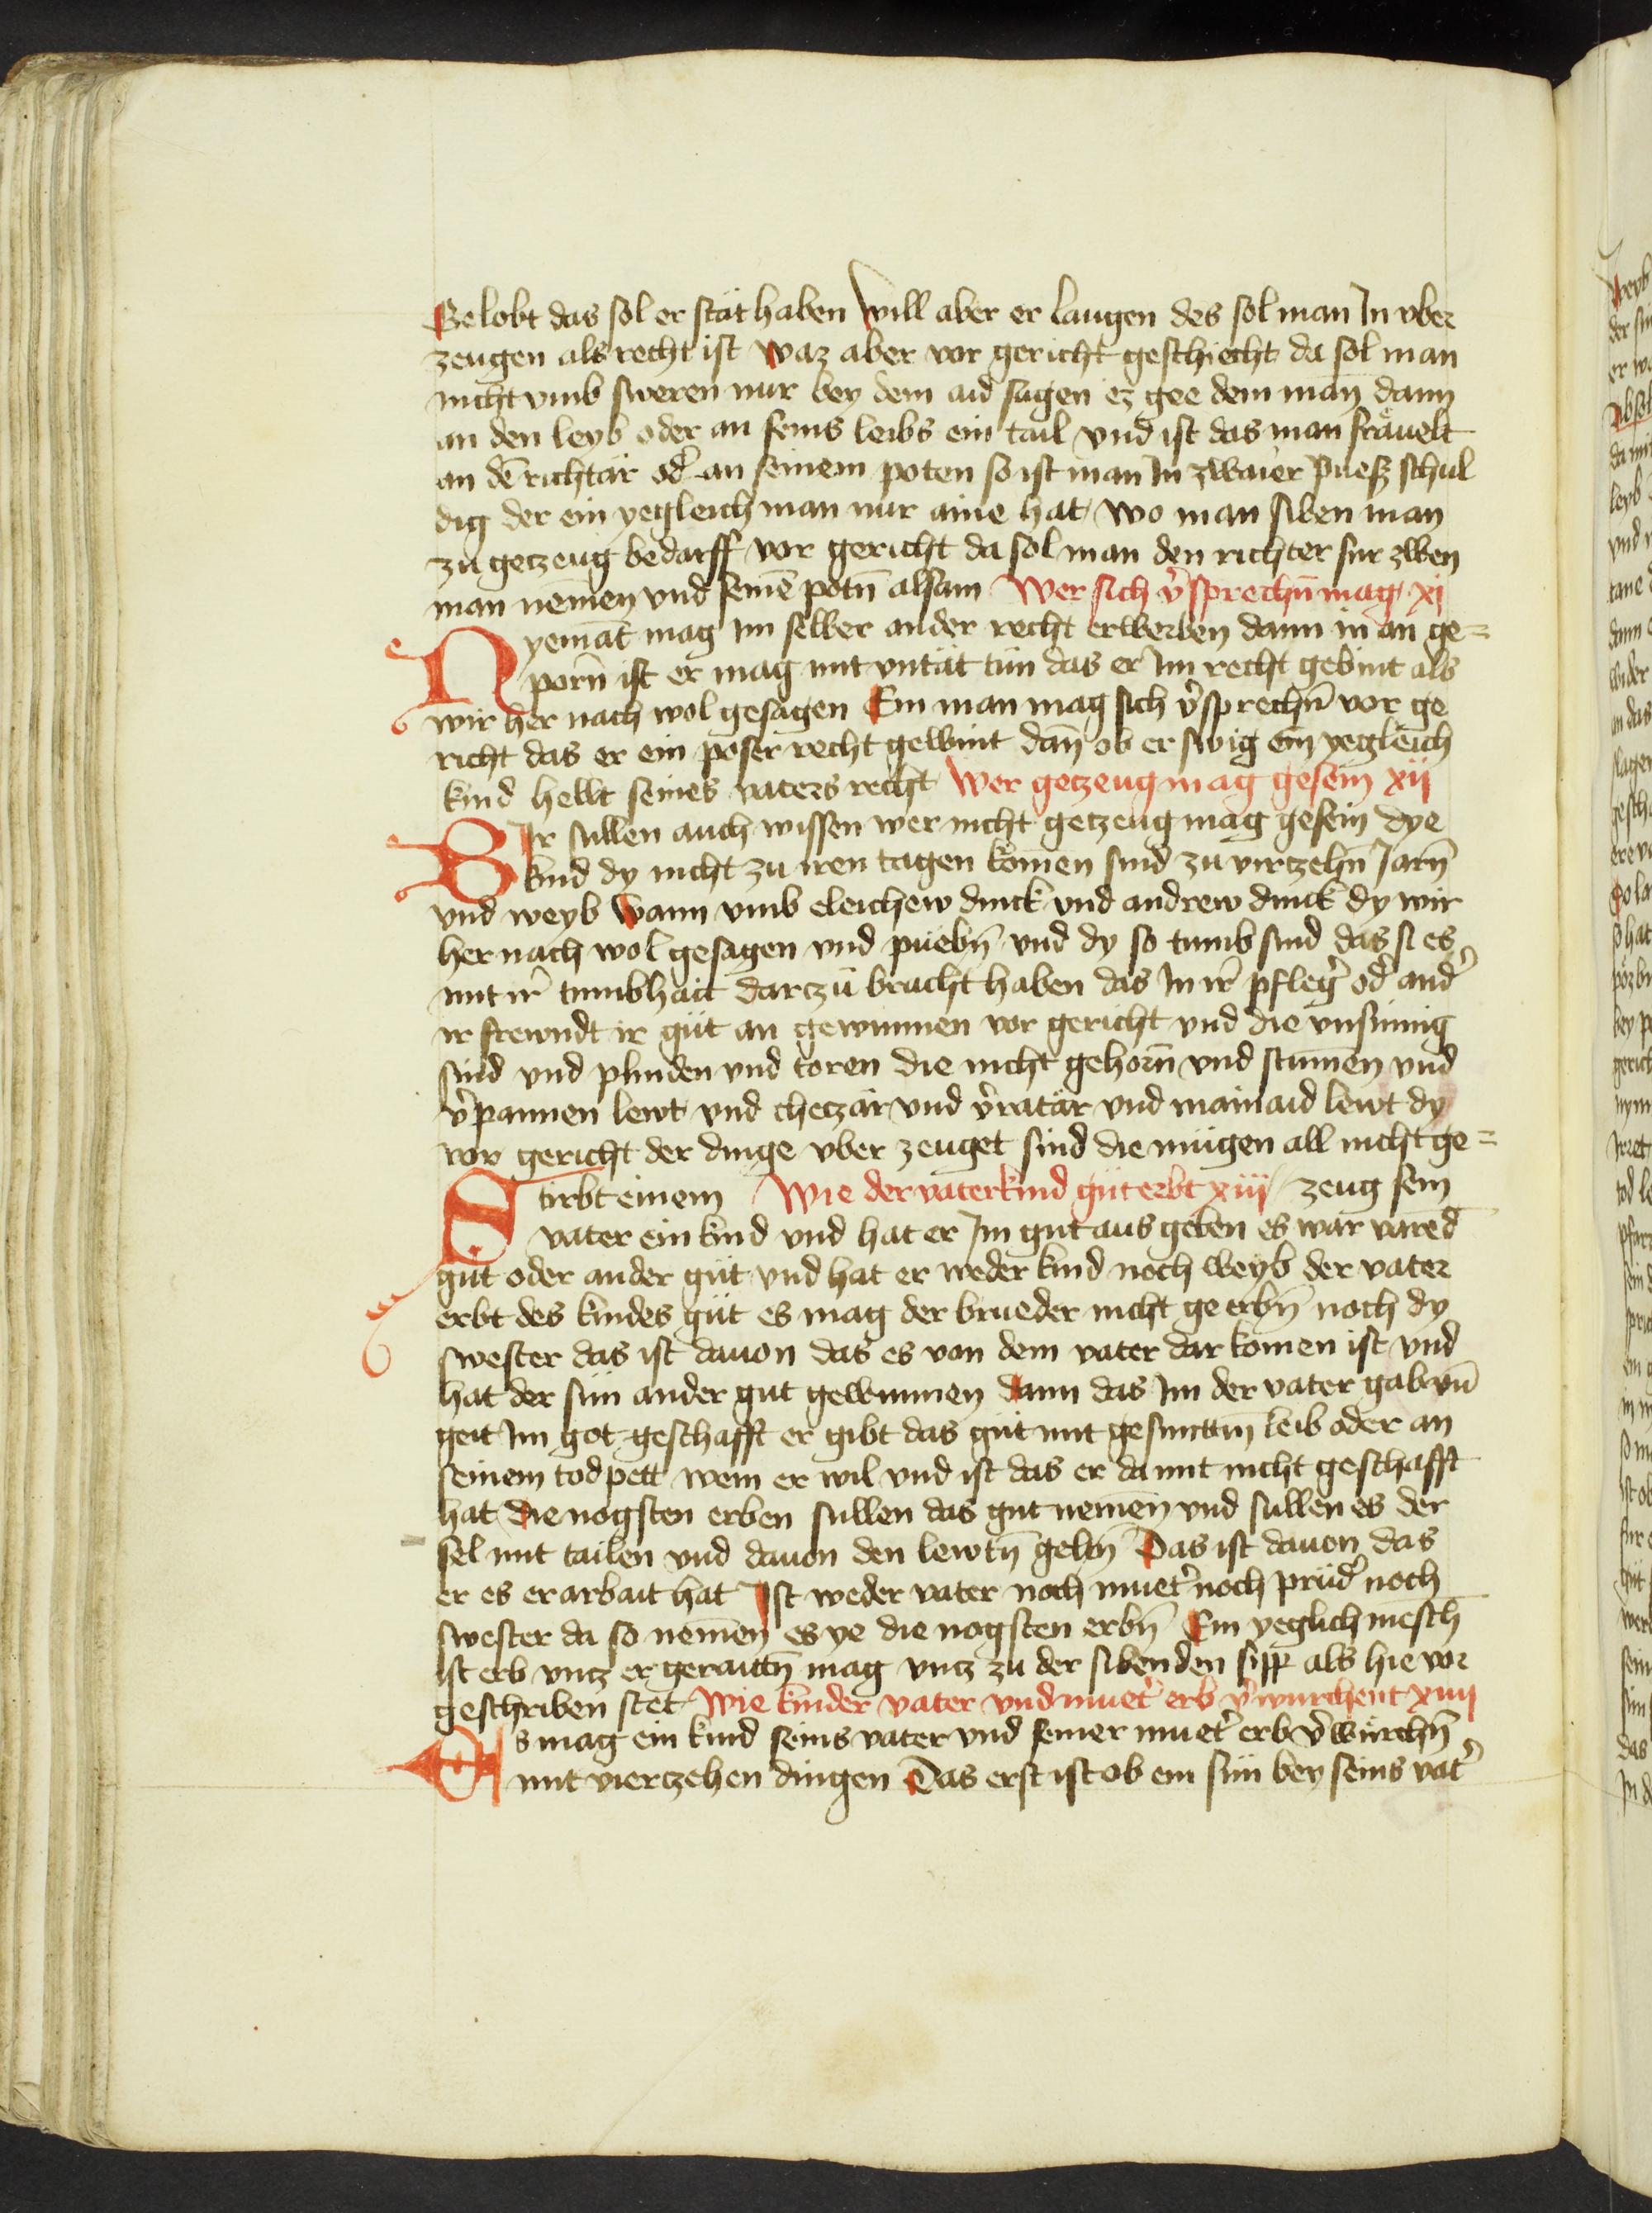 Gelobt das sol er stät haben Will aber er laugen des sol man In vber
zeugen als recht ist Waz aber vor gericht geschiecht da sol man
nicht vmb sweren nur bey dem aid sagen ez gee dem man dann
an den leyb oder an seins leibs ein tail vnd ist das man fräuelt
an dē richtär od͛ an seinem poten so ist man In zwaier puesz schul
dig der ein yegleich man nur aine hat / Wo man siben man
zu getzeug bedarff vor gericht da sol man den richter fur zwen
man nēmen vnd seinē potn̄ alsam Wer sich v͛sprechn̄ mag xj
Nyemāt mag im selber ander recht erwerben dann in an ge=
porn̄ ist er mag mit vntät tün das er Im recht gebint als
wir her nach wol gesagen Ein man mag sich v͛sprechn̄ vor ge
richt das er ein poser recht gewint dan̄ ob er swig ein yegleich
kind hellt seines vaters recht Wer getzeug mag gesein xij
Wir sullen auch wissen wer nicht getzeug mag gesein dye
kind dy nicht zu iren tagen komen sind zu virtzehn̄ Jarn̄
vnd weyb Wann vmb eleichew dinck vnd andrew dinck dy wir
her nach wol gesagen vnd puebn̄ vnd dy so tumb sind das si es
mit ir͛ tumbhait dartzu bracht haben das In ir͛ pfleg͛ od͛ and͛
ir frewndt ir güt an gewinnen vor gericht vnd die vnsinnig
sind vnd plinden vnd toren die nicht gehorn̄ vnd stumēn vnd
v͛pannen lewt vnd chetzär vnd v͛ratär vnd mainaid lewt dy
vor gericht der dinge vber zeuget sind die mügen all nicht ge=
Stirbt einem Wie der vater kind güt erbt xiij zeug sein
vater ein kind vnd hat er Im gut aus geben es wär varēd
gut oder ander güt vnd hat er weder kind noch weyb der vater
erbt des kindes güt es mag der brueder nicht ge erbn̄ noch dy
swester das ist dauon das es von dem vater dar komen ist vnd
hat der sün ander gut gewunnen dann das Im der vater gab vn̄
geit Im got geschafft er gibt das güt mit gesuntem̄ leib oder an
seinem tod pett wem er wil vnd ist das er da mit nicht geschafft
hat die nogsten erben sullen das gut nemēn vnd sullen es der
sel mit tailen vnd dauon den lewtn̄ gelten̄ Das ist dauon das
er es erarbait hat Ist weder vater noch muet͛ noch prüd͛ noch
swester da so nemēn es ye die nogsten erbn̄ Ein yeglich mēsch
ist erb vntz er geraittn̄ mag vntz zu der sibenden sipp als hie vor
geschriben stet Wie kinder vater vnd muet͛ erb v͛wurchent xiiij
Es mag ein kind seins vater vnd seiner muet͛ erb v͛würchn̄
mit viertzehen dingen Das erst ist ob ein sün bey seins vat͛